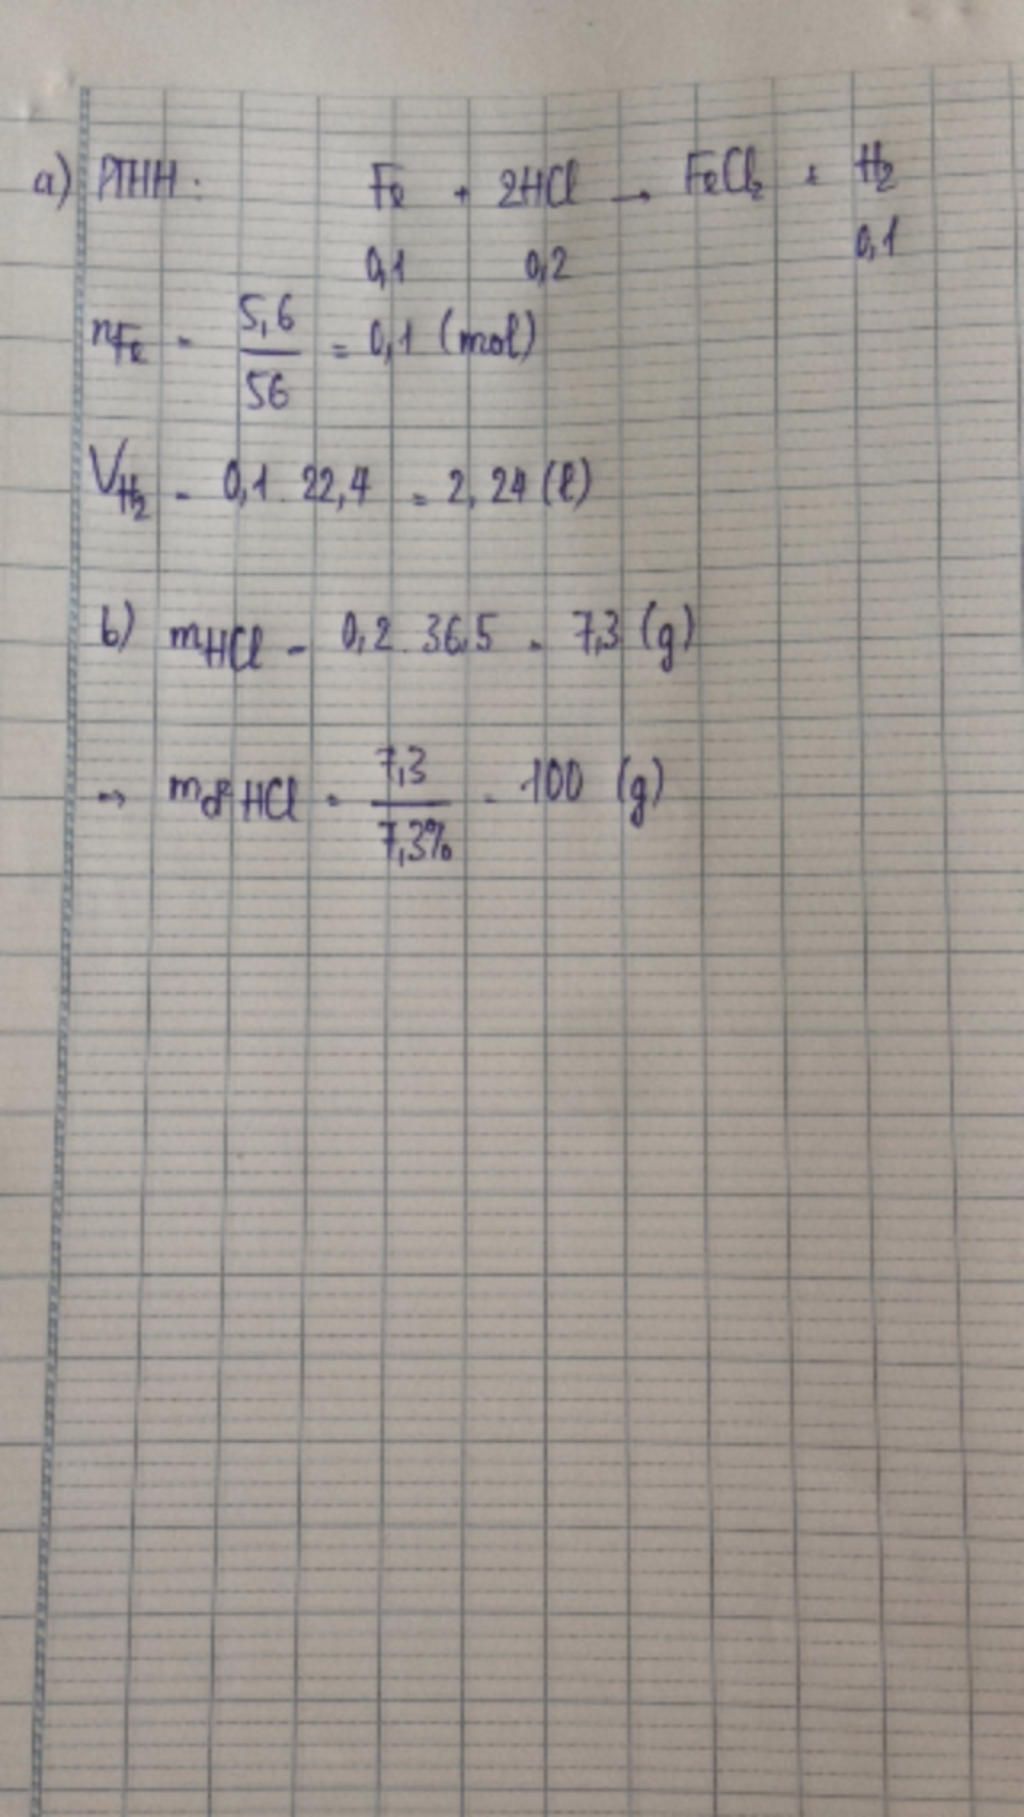 a) PTHH: Fe + 2HCl → FeCl₂ + H₂
0,1 0,2 0,1
nFe = 5,6/56 = 0,1 (mol)
VH₂ = 0,1 . 22,4 = 2,24 (l)
b) mHCl = 0,2 . 36,5 = 7,3 (g)
→ mdd HCl = 7,3/7,3% = 100 (g)